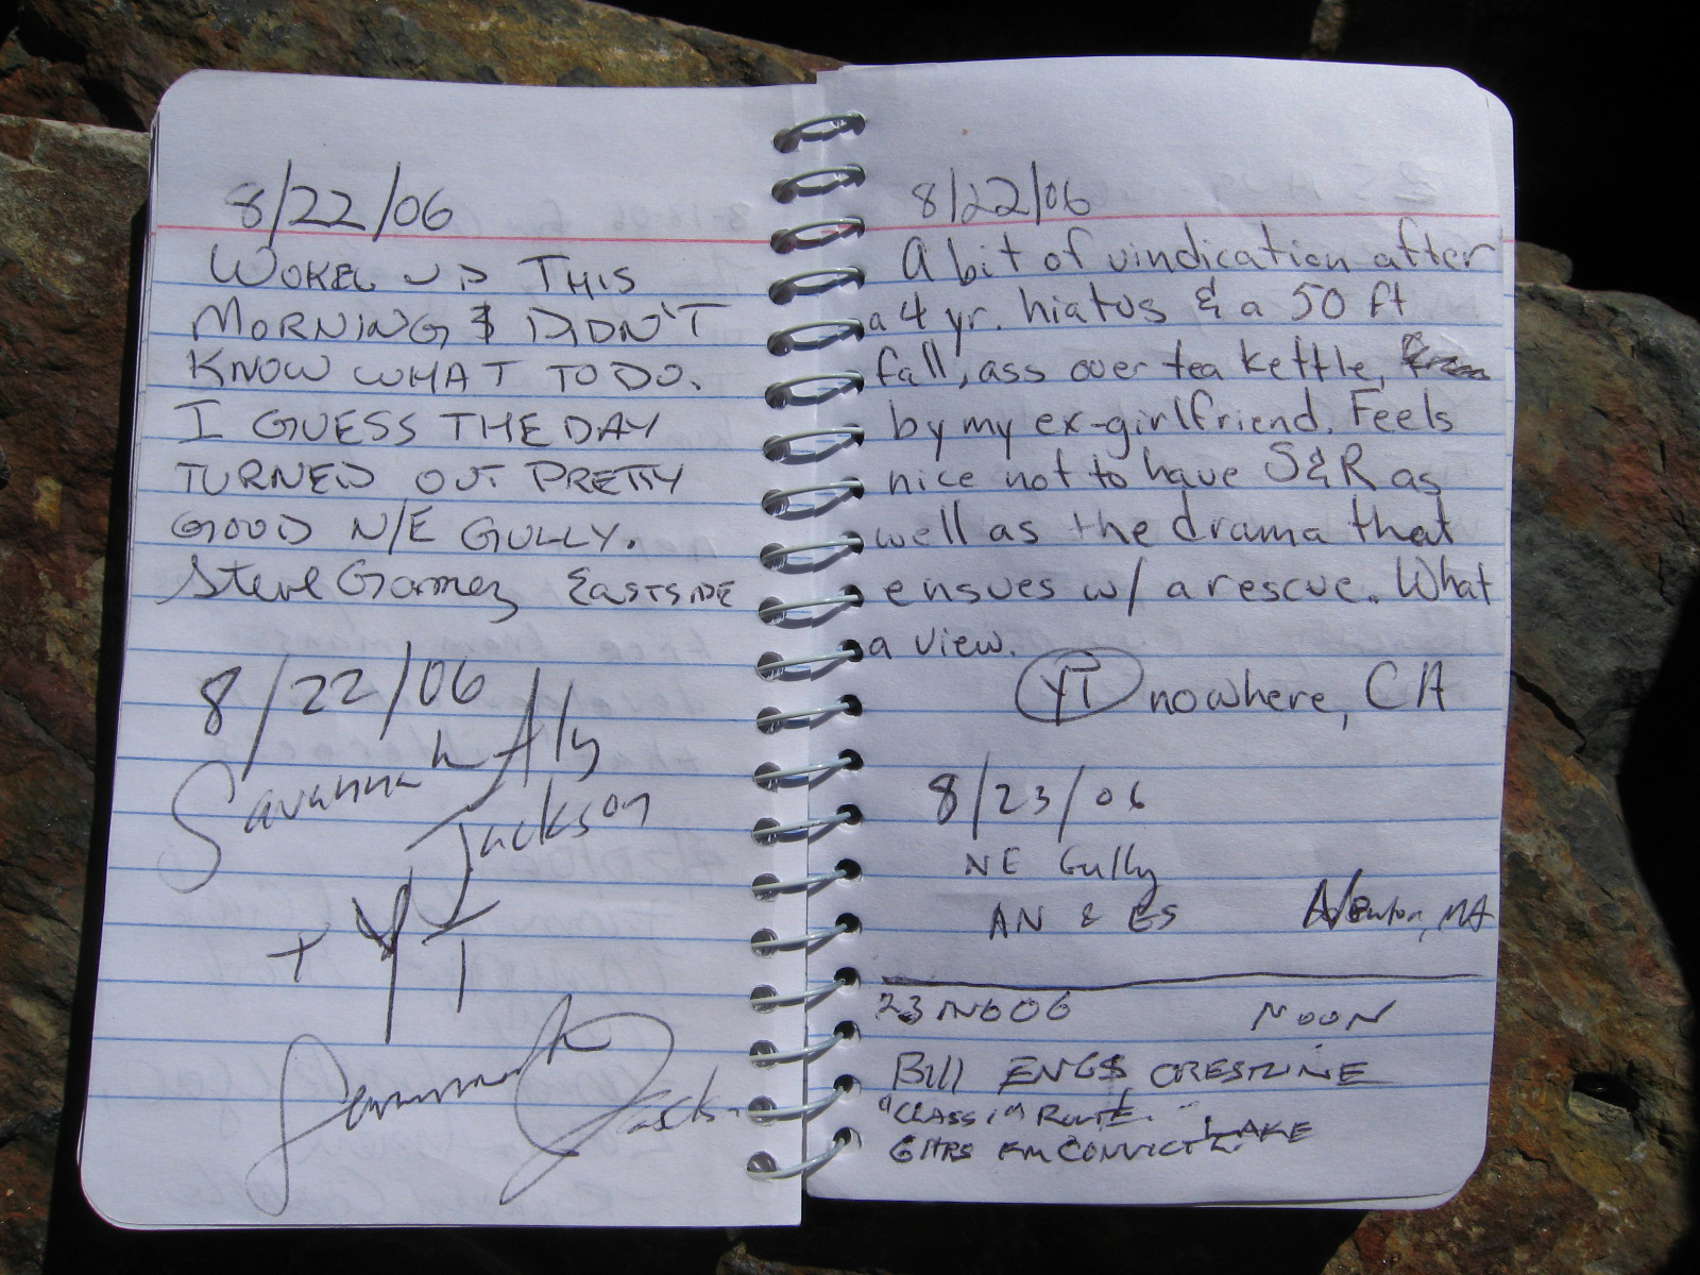 8/22/06
WOKE UP THIS
MORNING & DIDN'T
KNOW WHAT TO DO.
I GUESS THE DAY
TURNED OUT PRETTY
GOOD N/E GULLY.
Steve Gomez EASTSIDE
8/22/06
Savannah Aly
Jackson
+ YT
8/22/06
A bit of vindication after
a 4 yr. hiatus & a 50 ft
fall, ass over tea kettle,
by my ex-girlfriend. Feels
nice not to have S&R as
well as the drama that
ensues w/ a rescue. What
a view.
YT nowhere, CA
8/23/06
NE Gully
AN & ES Newton, MA
23 06 NOON
Bill
"CLASSIC" ROUTE.
6 HRS FM CONVICT LAKE